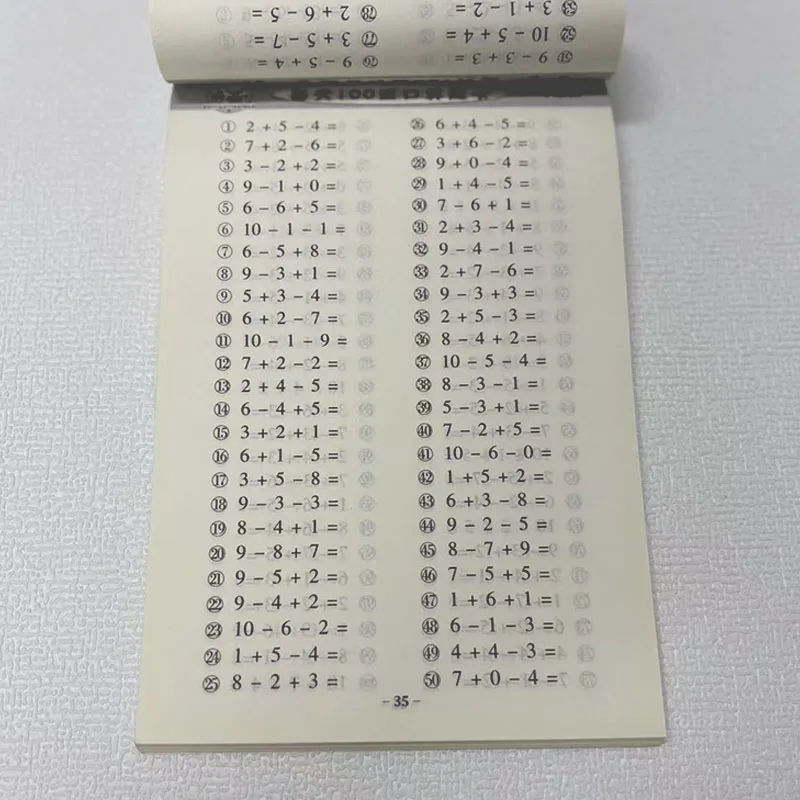 ㊿+3 3 + 1 - 2 =
① 2 + 5 - 4 =
② 7 + 2 - 6 =
③ 3 - 2 + 2 =
④ 9 - 1 + 0 =
⑤ 6 - 6 + 5 =
⑥ 10 - 1 - 1 =
⑦ 6 - 5 + 8 =
⑧ 9 - 3 + 1 =
⑨ 5 + 3 - 4 =
⑩ 6 + 2 - 7 =
⑪ 10 - 1 - 9 =
⑫ 7 + 2 - 2 =
⑬ 2 + 4 - 5 =
⑭ 6 - 4 + 5 =
⑮ 3 + 2 + 1 =
⑯ 6 + 1 - 5 =
⑰ 3 + 5 - 8 =
⑱ 9 - 3 - 3 =
⑲ 8 - 4 + 1 =
⑳ 9 - 8 + 7 =
㉑ 9 - 5 + 2 =
㉒ 9 - 4 + 2 =
㉓ 10 - 6 - 2 =
㉔ 1 + 5 - 4 =
㉕ 8 - 2 + 3 =
㉖ 6 + 4 - 5 =
㉗ 3 + 6 - 2 =
㉘ 9 + 0 - 4 =
㉙ 1 + 4 - 5 =
㉚ 7 - 6 + 1 =
㉛ 2 + 3 - 4 =
㉜ 9 - 4 - 1 =
㉝ 2 + 7 - 6 =
㉞ 9 - 3 + 3 =
㉟ 2 + 5 - 3 =
㊱ 8 - 4 + 2 =
㊲ 10 - 5 - 4 =
㊳ 8 - 3 - 1 =
㊴ 5 - 3 + 1 =
㊵ 7 - 2 + 5 =
㊶ 10 - 6 - 0 =
㊷ 1 + 5 + 2 =
㊸ 6 + 3 - 8 =
㊹ 9 - 2 - 5 =
㊺ 8 - 7 + 9 =
㊻ 7 - 5 + 5 =
㊼ 1 + 6 + 1 =
㊽ 6 - 1 - 3 =
㊾ 4 + 4 - 3 =
㊿ 7 + 0 - 4 =
- 35 -